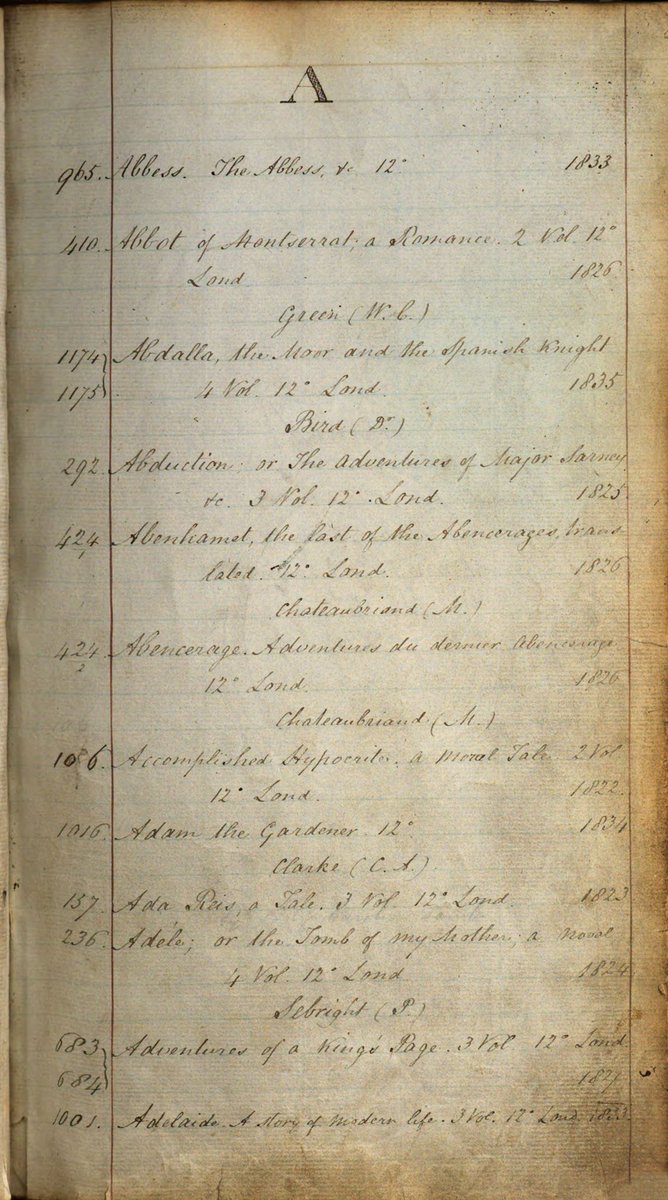 A
965. Abbess. The Abbess, &c 12° 1833
410. Abbot of Montserrat; a Romance. 2 Vol. 12°
Lond 1826
Green (W.C.)
1174 Abdalla, the Moor and the Spanish Knight
1175 4 Vol. 12° Lond. 1835
Bird (Dr)
292. Abduction: or The Adventures of Major Sarney
&c. 3 Vol. 12° Lond. 1825
424 1 Abenhamet, the last of the Abencerages, trans
lated. 12° Lond. 1826
Chateaubriand (M.)
424 2 Abencerage. Adventures du dernier Abencerage
12° Lond. 1826
Chateaubriand (M.)
106. Accomplished Hypocrite, a Moral Tale 2 Vol.
12° Lond. 1822
1016. Adam the Gardener. 12° 1834
Clarke (C.A.)
157. Ada Reis, a Tale. 3 Vol. 12° Lond. 1823
236. Adéle; or the Tomb of my Mother; a Novel
4 Vol. 12° Lond 1824
Sebright (P.)
683 Adventures of a King's Page. 3 Vol 12° Lond
684
1001. Adelaide. A story of modern life. 3 Vol. 12° Lond. 1833.